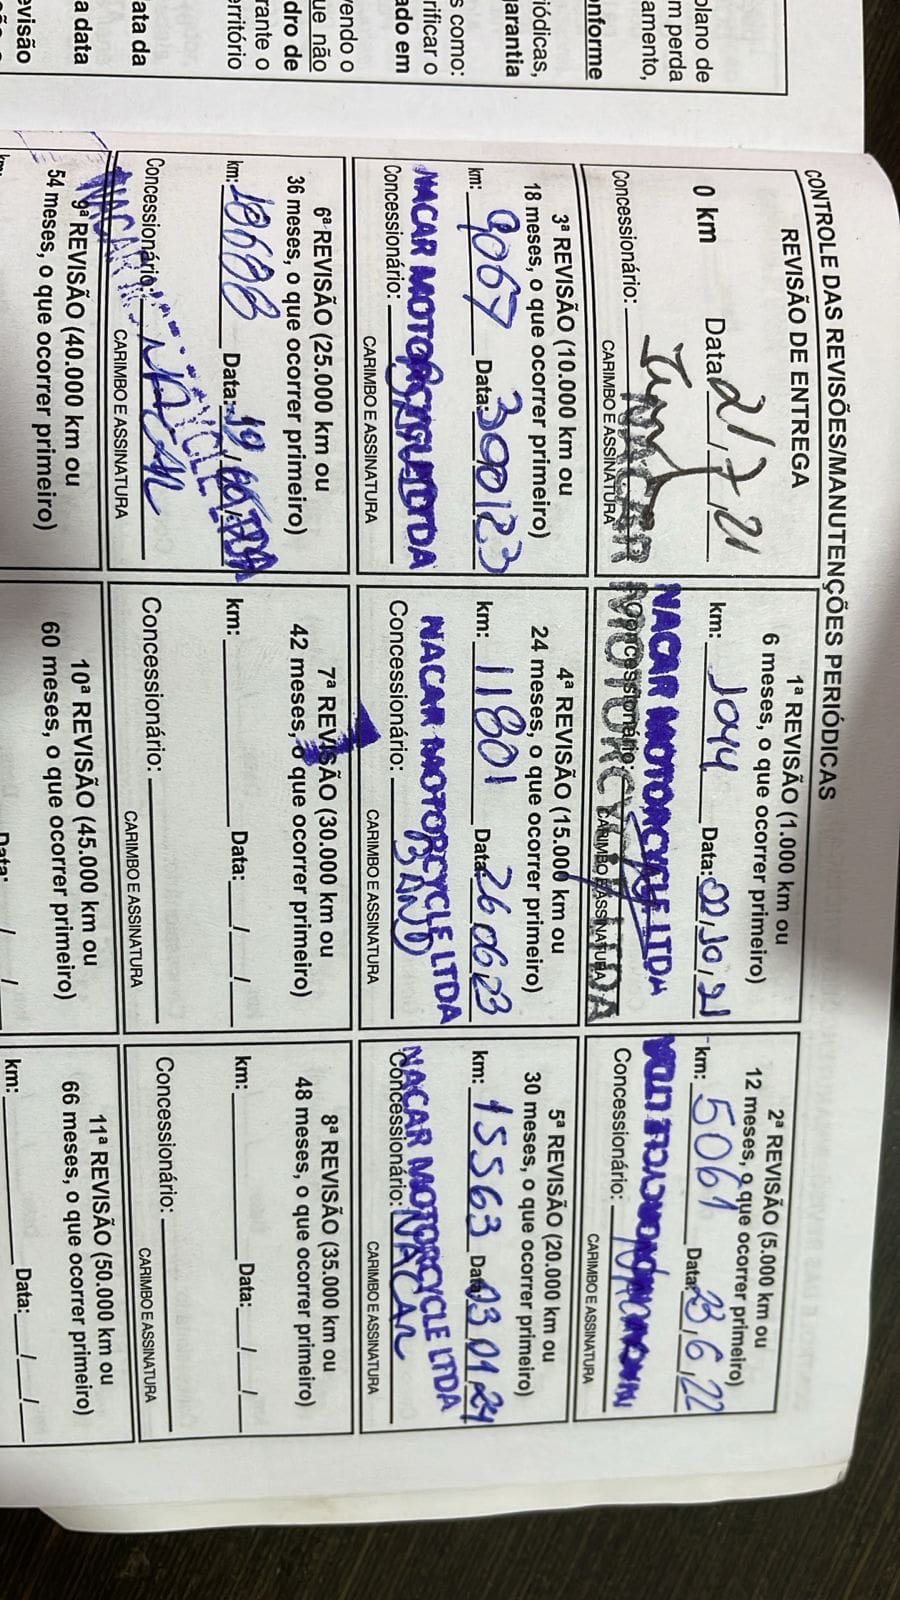 plano de
m perda
amento,
onforme
iódicas,
arantia
s como:
rificar o
ado em
vendo o
ue não
dro de
rante o
erritório
ata da
a data
evisão
CONTROLE DAS REVISÕES/MANUTENÇÕES PERIÓDICAS
REVISÃO DE ENTREGA
0 km Data 21/7/21
Concessionário:
CARIMBO E ASSINATURA
NACAR MOTORCYCLE LTDA
1ª REVISÃO (1.000 km ou
6 meses, o que ocorrer primeiro)
km: 1044 Data: 02/10/21
NACAR MOTORCYCLE LTDA
Concessionário:
CARIMBO E ASSINATURA
2ª REVISÃO (5.000 km ou
12 meses, o que ocorrer primeiro)
km: 5061 Data: 23/6/22
Concessionário: NACAR
CARIMBO E ASSINATURA
3ª REVISÃO (10.000 km ou
18 meses, o que ocorrer primeiro)
km: 9067 Data: 300123
NACAR MOTORCYCLE LTDA
Concessionário:
CARIMBO E ASSINATURA
4ª REVISÃO (15.000 km ou
24 meses, o que ocorrer primeiro)
km: 11801 Data: 260623
NACAR MOTORCYCLE LTDA
Concessionário:
CARIMBO E ASSINATURA
5ª REVISÃO (20.000 km ou
30 meses, o que ocorrer primeiro)
km: 15563 Data: 030124
NACAR MOTORCYCLE LTDA
Concessionário: NACAR
CARIMBO E ASSINATURA
6ª REVISÃO (25.000 km ou
36 meses, o que ocorrer primeiro)
km: 18688 Data:
Concessionário: NACAR
CARIMBO E ASSINATURA
7ª REVISÃO (30.000 km ou
42 meses, o que ocorrer primeiro)
km: Data: / /
Concessionário:
CARIMBO E ASSINATURA
8ª REVISÃO (35.000 km ou
48 meses, o que ocorrer primeiro)
km: Data: / /
Concessionário:
CARIMBO E ASSINATURA
9ª REVISÃO (40.000 km ou
54 meses, o que ocorrer primeiro)
km:
10ª REVISÃO (45.000 km ou
60 meses, o que ocorrer primeiro)
Data: / /
11ª REVISÃO (50.000 km ou
66 meses, o que ocorrer primeiro)
km: Data: / /